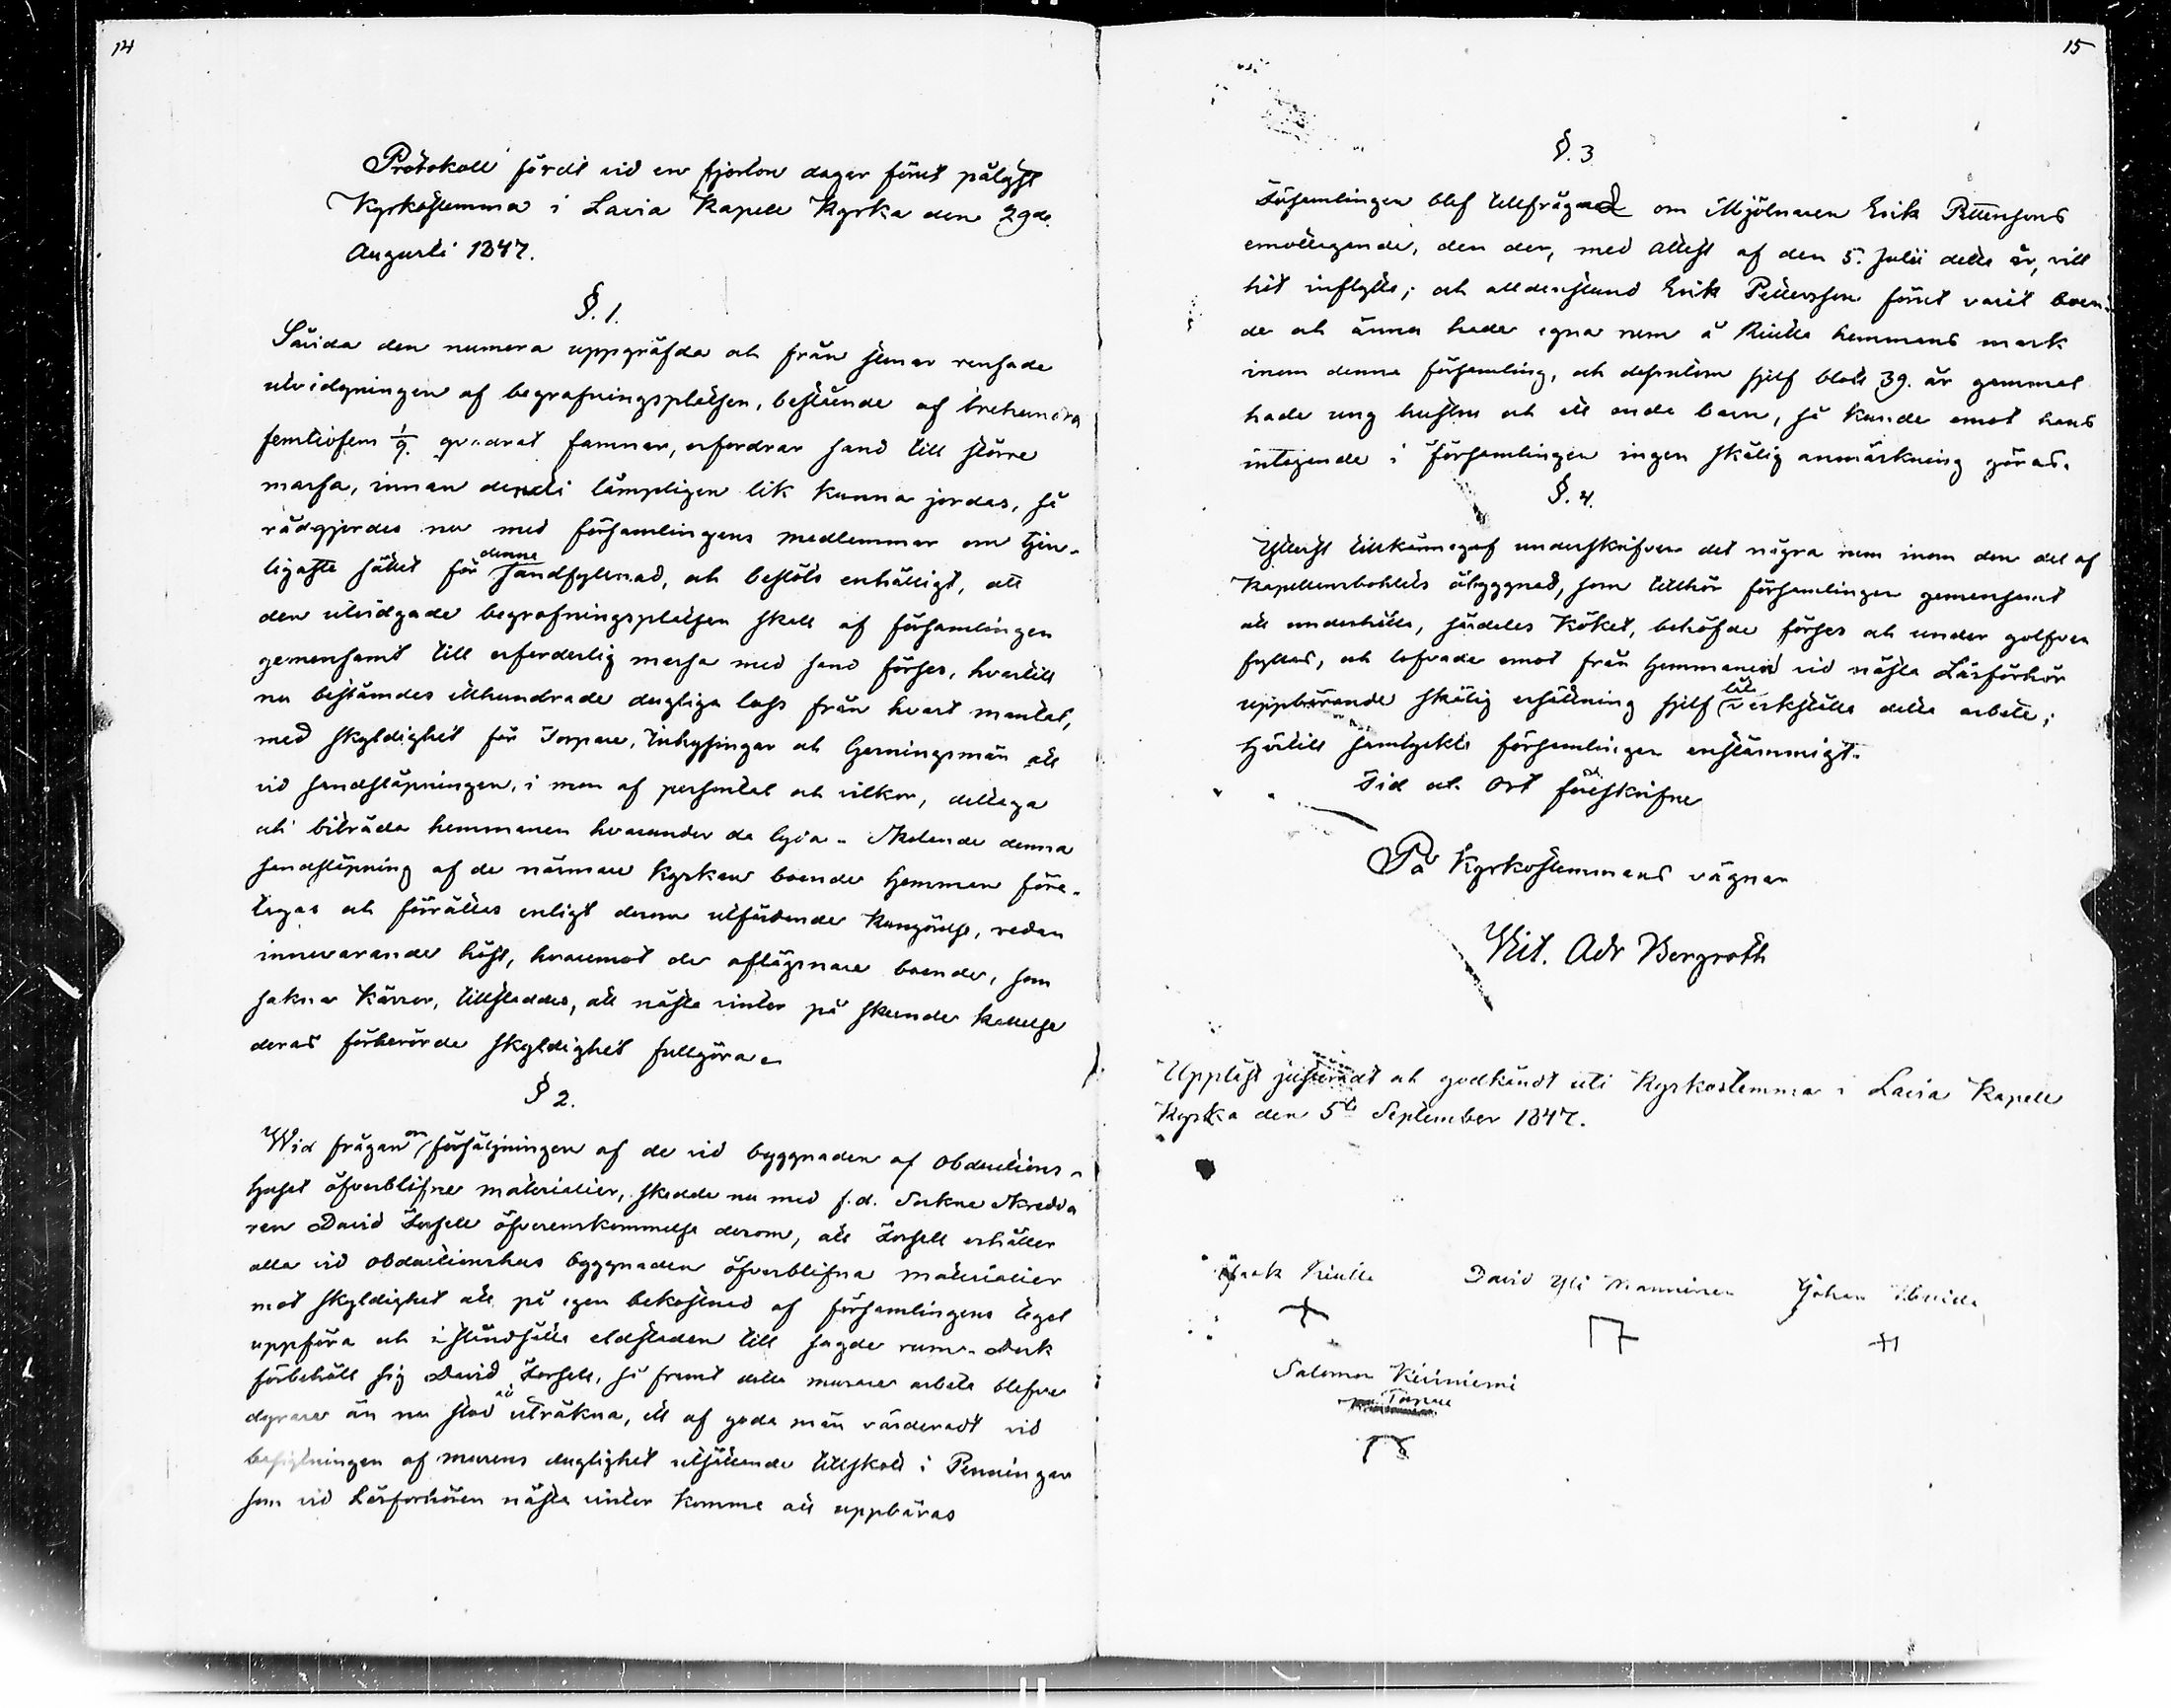 14
Protokoll fördt vid en fjorton dagar förut pålyst
Kyrkostemma i Lavia Kapell Kyrka den 29de
Augusti 1847.
§. 1.
Såvida den numera uppgräfda och från stenar rensade
utvidgningen af begrafningsplatsen, bestående af trehundra
femtiofem 1/9. quadrat famnar, erfordrar sand till större
massa, innan deruti lämpligen lik kunna jordas, så
rådgjordes nu med församlingens medlemmar om tjen-
ligaste sättet för denna sandfyllnad, och beslöts enhälligt, att
den utvidgade begrafningsplatsen skall af församlingen
gemensamt till erforderlig massa med sand förses, hvartill
nu bestämdes etthundrade dugliga lass från hvart mantal,
med skyldighet för Torpare, Inhysingar och Gerningsmän att
vid sandsläpningen, i mon af persontal och vilkor, deltaga
och biträda hemmanen hvarunder de lyda. Skolande denna
sandsläpning af de närmare Kyrkan boende Hemman före-
tagas och förrättas enligt derom utfärdande Kungörelse, redan
innevarande höst, hvaremot de aflägsnare boende, som
sakna Kärror, tillstaddes, att nästa vinter på skeende kallelse
deras förberörde skyldighet fullgöra.
§ 2.
Wid frågan om försäljningen af de vid byggnaden af Obductions-
huset öfverblifne materialier, skedde nu med f.d. Sockne Skredda
ren David Forsell öfverenskommelse derom, att Forsell erhåller
alla vid obductionshus byggnaden öfverblifna materialier
mot skyldighet att på egen bekostnad af församlingens tegel
uppföra och i ståndsätta eldstaden till sagde rum. Dock
förbehöll sig David Forsell, så framt detta murare arbete blefve
dyrare än nu stod att uträkna, ett af gode män värderadt vid
besigtningen af murens duglighet utsättande tillskott i Penningar
som vid Läsförhören nästa vinter komme att uppbäras
15
§. 3
Församlingen blef tillfrågad om Mjölnaren Erik Pettersons
emottagande, den der, med attest af den 5. Julii detta år, vill
hit inflytta; och alldenstund Erik Pettersson förut varit boen-
de och ännu hade egna rum å Riutta hemmans mark
inom denna församling, och dessutom sjelf blott 39. år gammal
hade ung hustru och ett enda barn, så kunde emot hans
intagande i församlingen ingen skälig anmärkning göras.
§. 4.
Ytterst tillkännagaf underskrifven det några rum inom den del af
Kapellansbohlets åbyggnad, som tillhör församlingen gemensamt
att underhålla, särdeles Köket, behöfde förses och under golfven
fyllas, och lofvade emot från Hemmanen vid nästa Läsförhör
uppbärande skälig ersättning sjelf låta verkställa detta arbete;
hjertill samtyckte församlingen enstämmigt.
Tid och Ort förut skrifne
På Kyrkostemmans vägnar
Wict. Adr Bergroth
Uppläst justeradt och godkändt uti Kyrkostemma i Lavia Kapell
Kyrka den 5te September 1847.
Isaak Riutta David Yli Manninen Johan
Salomon Kiviniemi